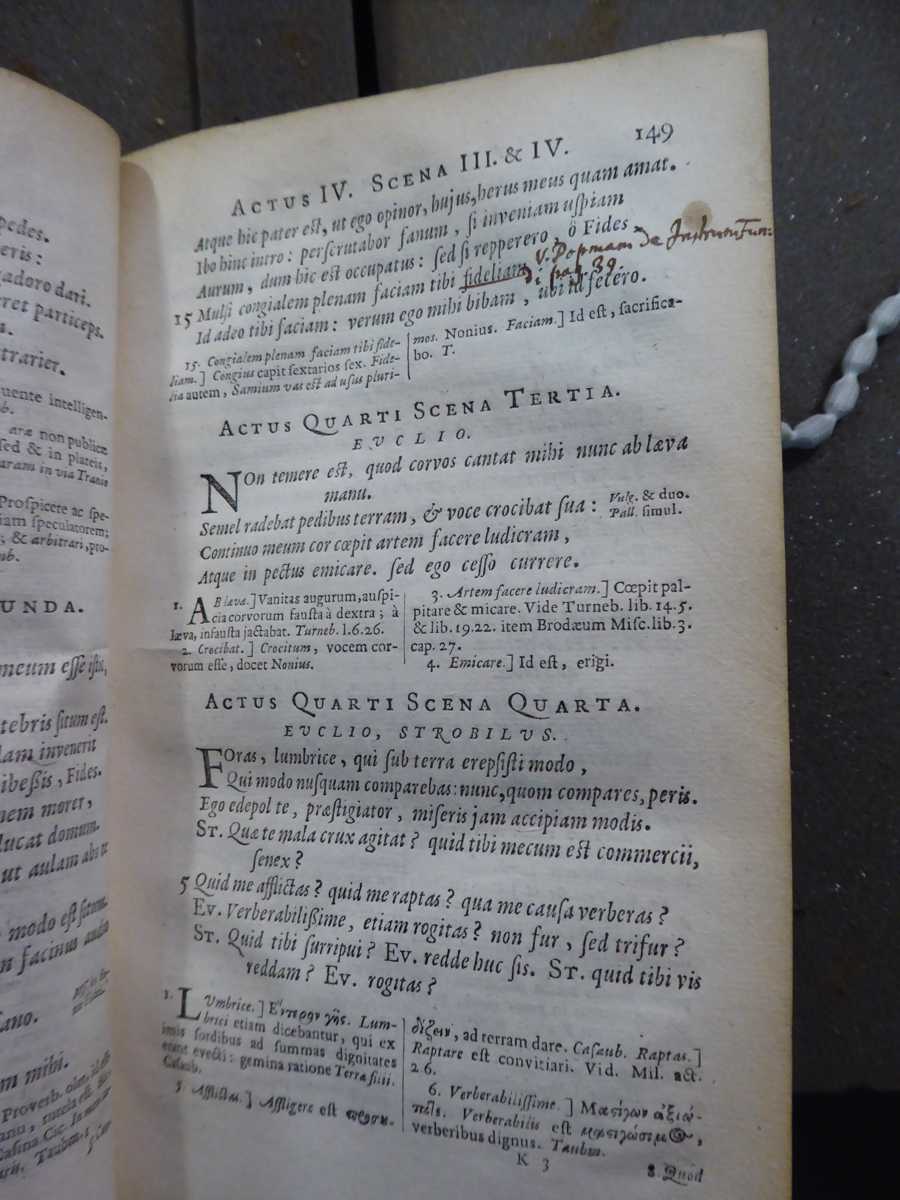 pedes.
eris :
gadoro dari.
rret particeps.
m.
trarier.
uente intelligen-
b.
aræ non publicæ
sed & in plateis,
aram in via Tranio
Prospicete ac spe-
iam speculatorem;
; & arbitrari, pro-
mb.
UNDA.
meum esse istic,
tebris situm est.
lam invenerit
ibeßis, Fides.
nem moret,
lucat domum.
ut aulam abs te
modo est situm.
n facinus audeo
sano.
m mihi.
Proverb.
ACTUS IV. SCENA III. & IV. 149
Atque hic pater est, ut ego opinor, hujus, herus meus quam amat.
Ibo hinc intro : perscrutabor fanum, si inveniam uspiam
Aurum, dum hic est occupatus : sed si repperero, ô Fides,
15 Mulsi congialem plenam faciam tibi fideliam.
v. Popmam de Instrum. Fun-
di pag. 39.
Id adeo tibi faciam : verum ego mihi bibam, ubi id fecero.
15. Congialem plenam faciam tibi fide-
liam.] Congius capit sextarios sex. Fide-
lia autem, Samium vas est ad usus pluri-
mos. Nonius. Faciam.] Id est, sacrifica-
bo. T.
ACTUS QUARTI SCENA TERTIA.
EUCLIO.
NOn temere est, quod corvos cantat mihi nunc ab læva
manu.
Semel radebat pedibus terram, & voce crocibat sua :
Vulg. & duo.
Pall. simul.
Continuo meum cor cœpit artem facere ludicram,
Atque in pectus emicare. sed ego cesso currere.
1. AB læva.] Vanitas augurum, auspi-
cia corvorum fausta à dextra ; à
læva, infausta jactabat. Turneb. l.6.26.
2. Crocibat.] Crocitum, vocem cor-
vorum esse, docet Nonius.
3. Artem facere ludicram.] Cœpit pal-
pitare & micare. Vide Turneb. lib. 14.5.
& lib. 19.22. item Brodæum Misc. lib. 3.
cap. 27.
4. Emicare.] Id est, erigi.
ACTUS QUARTI SCENA QUARTA.
EUCLIO, STROBILUS.
FOras, lumbrice, qui sub terra erepsisti modo,
Qui modo nusquam comparebas: nunc, quom compares, peris.
Ego edepol te, præstigiator, miseris jam accipiam modis.
ST. Quæ te mala crux agitat ? quid tibi mecum est commercii,
senex ?
5 Quid me afflictas ? quid me raptas ? qua me causa verberas ?
EV. Verberabilißime, etiam rogitas ? non fur, sed trifur ?
ST. Quid tibi surripui ? EV. redde huc sis. ST. quid tibi vis
reddam ? EV. rogitas ?
1. LUmbrice.] Ἔντερον γῆς. Lum-
brici etiam dicebantur, qui ex
imis sordibus ad summas dignitates
erant evecti : gemina ratione Terræ filii.
Casaub.
5. Afflictas.] Affligere est
ad terram dare. Casaub. Raptas.]
Raptare est convitiari. Vid. Mil. act.
2 6.
6. Verberabilissime.] Μαστίγων ἀξιώ-
τατε. Verberabilis est μαστιγώσιμος,
verberibus dignus. Taubm.
K 3
8. Quod